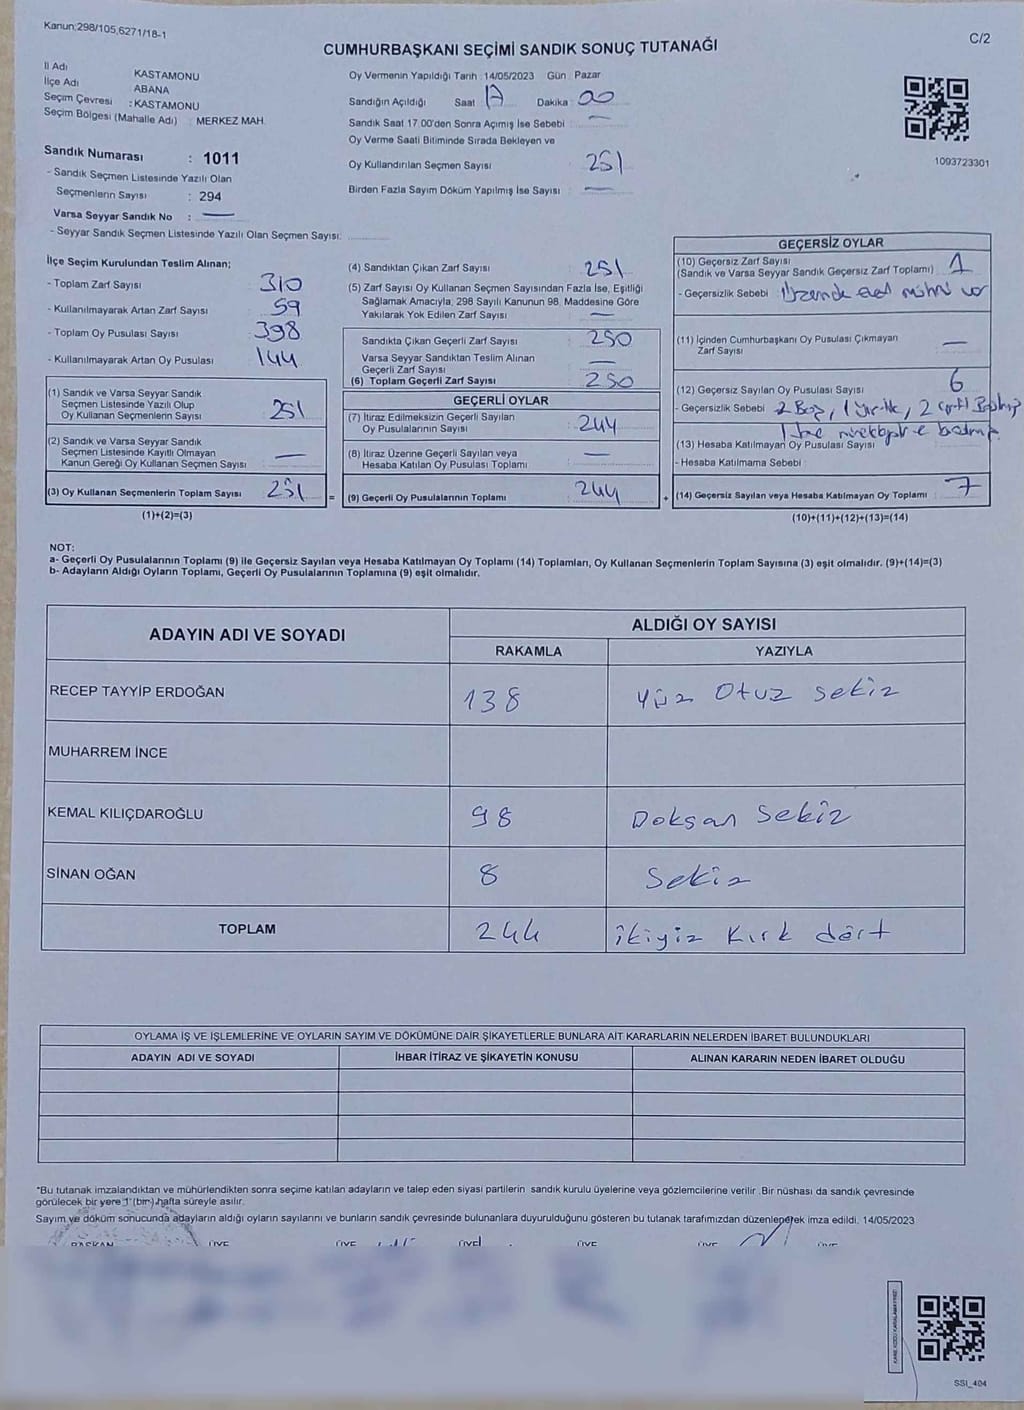 Kanun:298/105,6271/18-1
C/2
CUMHURBAŞKANI SEÇİMİ SANDIK SONUÇ TUTANAĞI
İl Adı KASTAMONU
İlçe Adı ABANA
Seçim Çevresi : KASTAMONU
Seçim Bölgesi (Mahalle Adı) MERKEZ MAH.
Sandık Numarası : 1011
- Sandık Seçmen Listesinde Yazılı Olan
Seçmenlerin Sayısı : 294
Varsa Seyyar Sandık No : —
- Seyyar Sandık Seçmen Listesinde Yazılı Olan Seçmen Sayısı:
Oy Vermenin Yapıldığı Tarih 14/05/2023 Gün Pazar
Sandığın Açıldığı Saat 17 Dakika 00
Sandık Saat 17.00'den Sonra Açımış İse Sebebi : —
Oy Verme Saati Bitiminde Sırada Bekleyen ve
Oy Kullandırılan Seçmen Sayısı : 251
Birden Fazla Sayım Döküm Yapılmış İse Sayısı : —
1093723301
İlçe Seçim Kurulundan Teslim Alınan;
- Toplam Zarf Sayısı 310
- Kullanılmayarak Artan Zarf Sayısı 59
- Toplam Oy Pusulası Sayısı 398
- Kullanılmayarak Artan Oy Pusulası 144
(1) Sandık ve Varsa Seyyar Sandık
Seçmen Listesinde Yazılı Olup
Oy Kullanan Seçmenlerin Sayısı 251
(2) Sandık ve Varsa Seyyar Sandık
Seçmen Listesinde Kayıtlı Olmayan
Kanun Gereği Oy Kullanan Seçmen Sayısı —
(3) Oy Kullanan Seçmenlerin Toplam Sayısı 251
(1)+(2)=(3)
(4) Sandıktan Çıkan Zarf Sayısı 251
(5) Zarf Sayısı Oy Kullanan Seçmen Sayısından Fazla İse, Eşitliği
Sağlamak Amacıyla, 298 Sayılı Kanunun 98. Maddesine Göre
Yakılarak Yok Edilen Zarf Sayısı —
Sandıkta Çıkan Geçerli Zarf Sayısı 250
Varsa Seyyar Sandıktan Teslim Alınan
Geçerli Zarf Sayısı —
(6) Toplam Geçerli Zarf Sayısı 250
GEÇERLİ OYLAR
(7) İtiraz Edilmeksizin Geçerli Sayılan
Oy Pusulalarının Sayısı 244
(8) İtiraz Üzerine Geçerli Sayılan veya
Hesaba Katılan Oy Pusulası Toplamı —
= (9) Geçerli Oy Pusulalarının Toplamı 244
GEÇERSİZ OYLAR
(10) Geçersiz Zarf Sayısı
(Sandık ve Varsa Seyyar Sandık Geçersiz Zarf Toplamı) 1
- Geçersizlik Sebebi Üzerinde evet mührü var
(11) İçinden Cumhurbaşkanı Oy Pusulası Çıkmayan
Zarf Sayısı —
(12) Geçersiz Sayılan Oy Pusulası Sayısı 6
- Geçersizlik Sebebi 2 Boş, 1 yırtık, 2
(13) Hesaba Katılmayan Oy Pusulası Sayısı
- Hesaba Katılmama Sebebi
+ (14) Geçersiz Sayılan veya Hesaba Katılmayan Oy Toplamı 7
(10)+(11)+(12)+(13)=(14)
NOT:
a- Geçerli Oy Pusulalarının Toplamı (9) ile Geçersiz Sayılan veya Hesaba Katılmayan Oy Toplamı (14) Toplamları, Oy Kullanan Seçmenlerin Toplam Sayısına (3) eşit olmalıdır. (9)+(14)=(3)
b- Adayların Aldığı Oyların Toplamı, Geçerli Oy Pusulalarının Toplamına (9) eşit olmalıdır.
ADAYIN ADI VE SOYADI
ALDIĞI OY SAYISI
RAKAMLA YAZIYLA
RECEP TAYYİP ERDOĞAN 138 yüz otuz sekiz
MUHARREM İNCE
KEMAL KILIÇDAROĞLU 98 Doksan sekiz
SİNAN OĞAN 8 Sekiz
TOPLAM 244 ikiyüz kırk dört
OYLAMA İŞ VE İŞLEMLERİNE VE OYLARIN SAYIM VE DÖKÜMÜNE DAİR ŞİKAYETLERLE BUNLARA AİT KARARLARIN NELERDEN İBARET BULUNDUKLARI
ADAYIN ADI VE SOYADI İHBAR İTİRAZ VE ŞİKAYETİN KONUSU ALINAN KARARIN NEDEN İBARET OLDUĞU
*Bu tutanak imzalandıktan ve mühürlendikten sonra seçime katılan adayların ve talep eden siyasi partilerin sandık kurulu üyelerine veya gözlemcilerine verilir. Bir nüshası da sandık çevresinde
görülecek bir yere 1 (bir) hafta süreyle asılır.
Sayım ve döküm sonucunda adayların aldığı oyların sayılarını ve bunların sandık çevresinde bulunanlara duyurulduğunu gösteren bu tutanak tarafımızdan düzenlenerek imza edildi. 14/05/2023
BAŞKAN ÜYE ÜYE ÜYE ÜYE ÜYE ÜYE
SSI_404